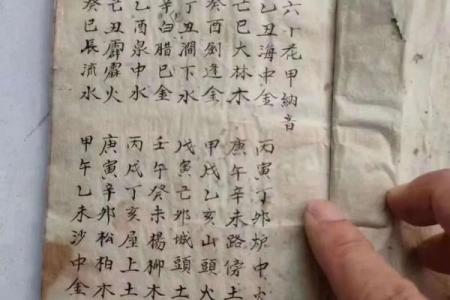 六十花甲納音
乙丑海中金
丙寅丁卯炉中火
己巳大林木
庚午辛未路傍土
癸酉劉逢金
甲戌乙亥山頭火
丁丑澗下水
戊寅己卯城頭土
辛白腊巳金
壬午癸未楊柳木
乙酉泉中水
丙戌丁亥屋上土
己丑霹靂火
庚寅辛卯松柏木
癸巳長流水
甲午乙未沙中金